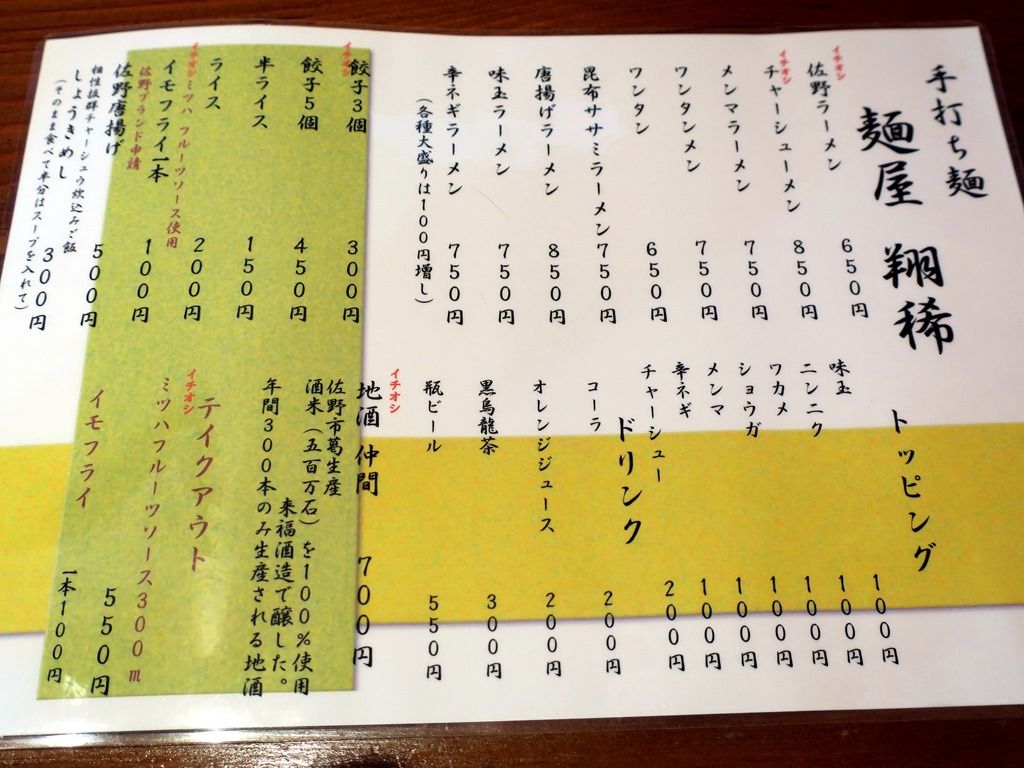 手打ち麺
麺屋 翔稀
イチオシ
佐野ラーメン 650円
イチオシ
チャーシューメン 850円
メンマラーメン 750円
ワンタンメン 750円
ワンタン 650円
昆布ササミラーメン 750円
唐揚げラーメン 850円
味玉ラーメン 750円
辛ネギラーメン 750円
(各種大盛りは100円増し)
イチオシ
餃子3個 300円
餃子5個 450円
半ライス 150円
ライス 200円
イチオシ
ミツハ フルーツソース使用
イモフライ一本 100円
佐野ブランド申請
佐野唐揚げ 500円
相性抜群チャーシュウ炊込みご飯
しょうきめし 300円
(そのまま食べて半分はスープを入れて)
トッピング
味玉 100円
ニンニク 100円
ワカメ 100円
ショウガ 100円
メンマ 100円
辛ネギ 100円
チャーシュー 200円
ドリンク
コーラ 200円
オレンジジュース 200円
黒烏龍茶 300円
瓶ビール 550円
イチオシ
地酒 仲間 700円
佐野市葛生産
酒米(五百万石)を100%使用
来福酒造で醸した。
年間300本のみ生産される地酒
テイクアウト
イチオシ
ミツハフルーツソース300m
550円
イモフライ
一本100円